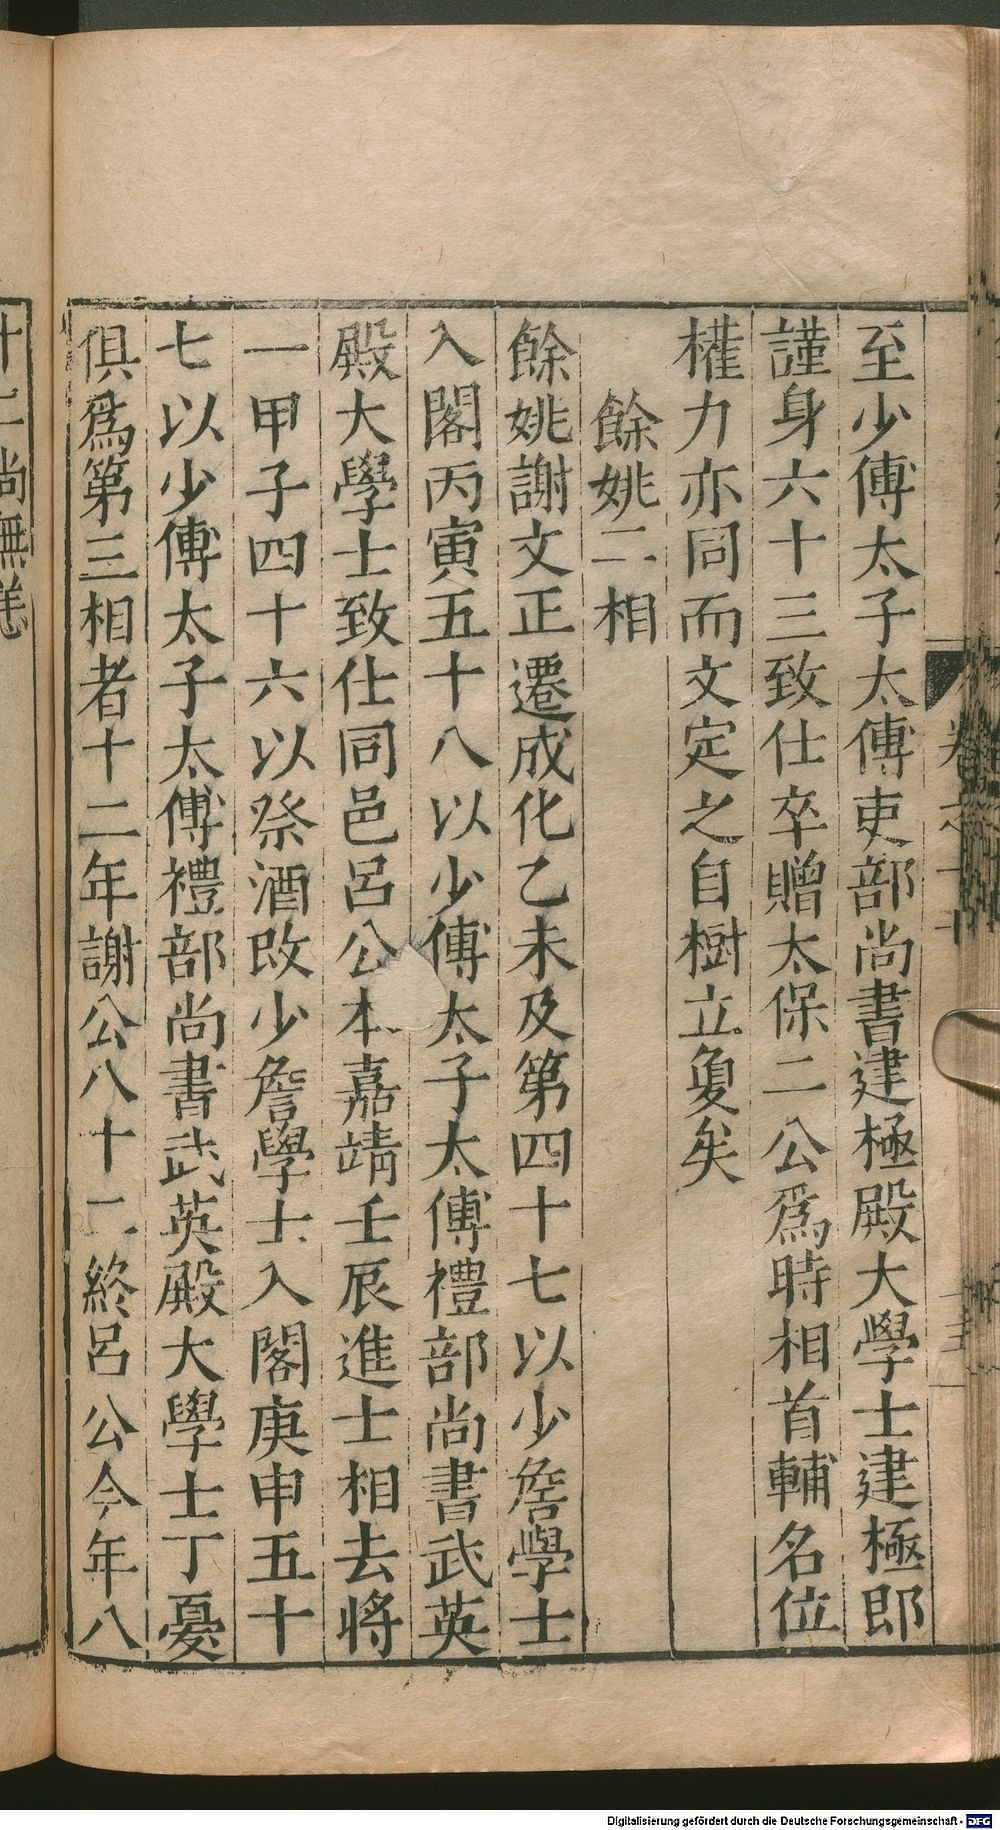 至少傅太子太傅吏部尚書建極殿大學士建極即
謹身六十三致仕卒贈太保二公爲時相首輔名位
權力亦同而文定之自樹立敻矣
餘姚二相
餘姚謝文正遷成化乙未及第四十七以少詹學士
入閣丙寅五十八以少傅太子太傅禮部尚書武英
殿大學士致仕同邑呂公本嘉靖壬辰進士相去將
一甲子四十六以祭酒改少詹學士入閣庚申五十
七以少傅太子太傅禮部尚書武英殿大學士丁憂
俱爲第三相者十二年謝公八十二終呂公今年八
十二尚無恙
Digitalisierung gefördert durch die Deutsche Forschungsgemeinschaft - DFG